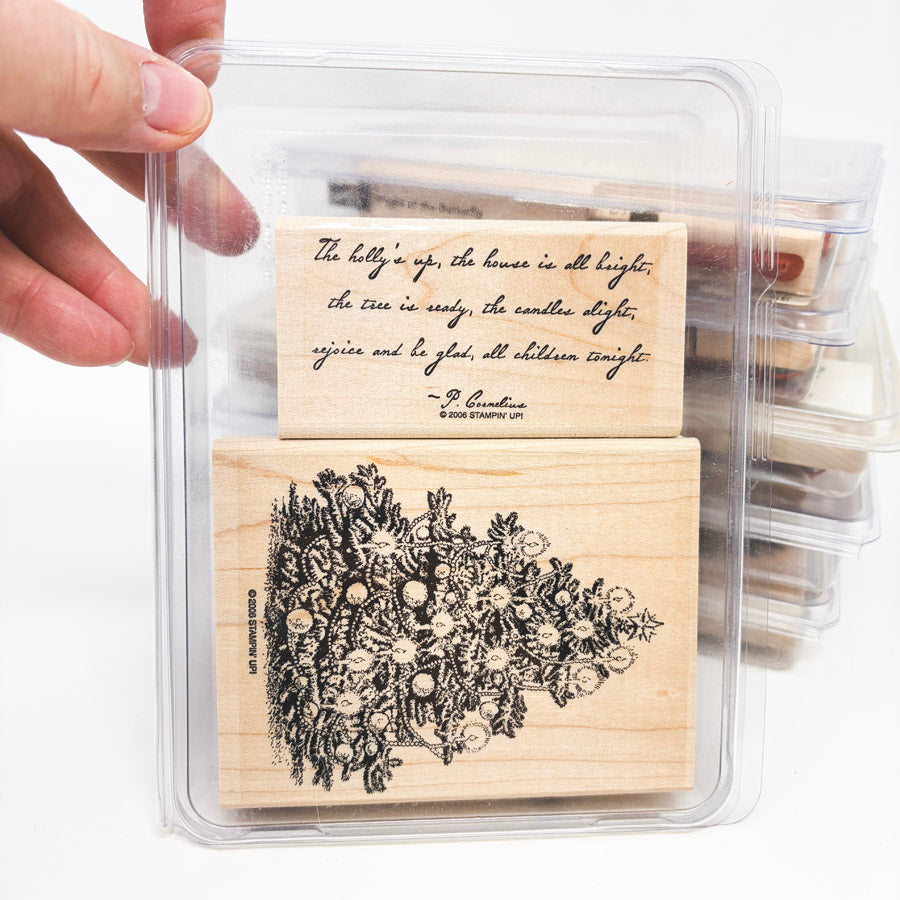 The holly's up, the house is all bright,
the tree is ready, the candles alight,
rejoice and be glad, all children tonight.
~P. Cornelius
© 2006 STAMPIN' UP!
© 2006 STAMPIN' UP!